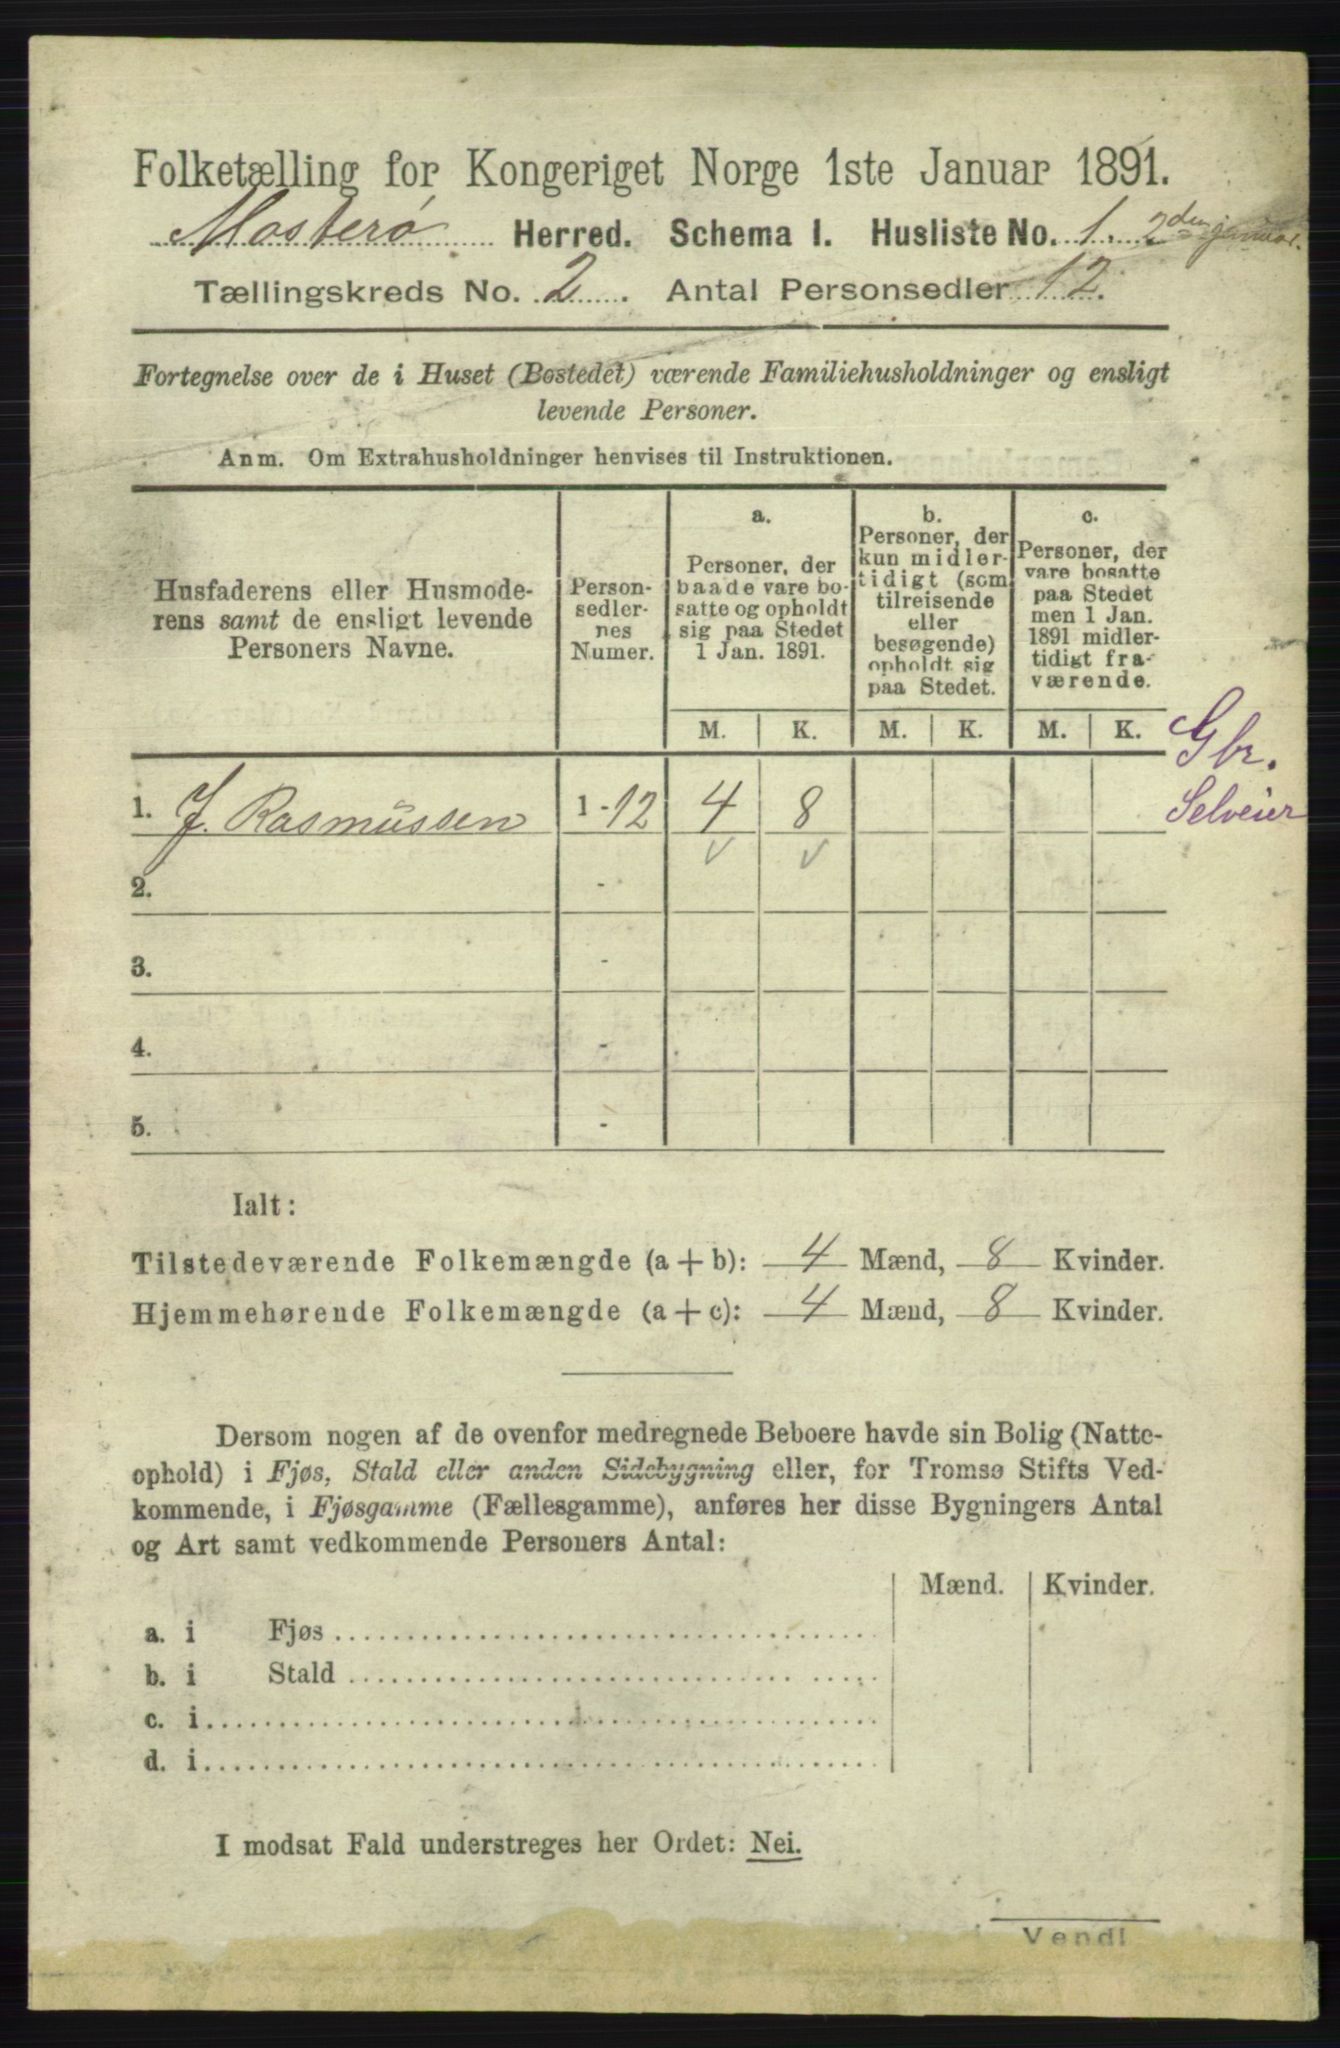 Folketælling for Kongeriget Norge 1ste Januar 1891.
Mosterø Herred. Schema I. Husliste No. 1. 2den januar.
Tællingskreds No. 2. Antal Personsedler 12.
Fortegnelse over de i Huset (Bostedet) værende Familiehusholdninger og ensligt
levende Personer.
Anm. Om Extrahusholdninger henvises til Instruktionen.
Husfaderens eller Husmode-
rens samt de ensligt levende
Personers Navne.
Person-
sedler-
nes
Numer.
a.
Personer, der
baade vare bo-
satte og opholdt
sig paa Stedet
1 Jan. 1891.
b.
Personer, der
kun midler-
tidigt (som
tilreisende
eller
besøgende)
opholdt sig
paa Stedet.
c.
Personer, der
vare bosatte
paa Stedet
men 1 Jan.
1891 midler-
tidigt fra-
værende.
M. K. M. K. M. K.
Gbr.
Selveier
1. J. Rasmussen 1-12 4 8
2. -
3. -
4. -
5. -
Ialt:
Tilstedeværende Folkemængde (a + b): 4 Mænd, 8 Kvinder.
Hjemmehørende Folkemængde (a + c): 4 Mænd, 8 Kvinder.
Dersom nogen af de ovenfor medregnede Beboere havde sin Bolig (Natte-
ophold) i Fjøs, Stald eller anden Sidebygning eller, for Tromsø Stifts Ved-
kommende, i Fjøsgamme (Fællesgamme), anføres her disse Bygningers Antal
og Art samt vedkommende Personers Antal:
Mænd. Kvinder.
a. i Fjøs
b. i Stald
c. i
d. i
I modsat Fald understreges her Ordet: Nei.
Vend!